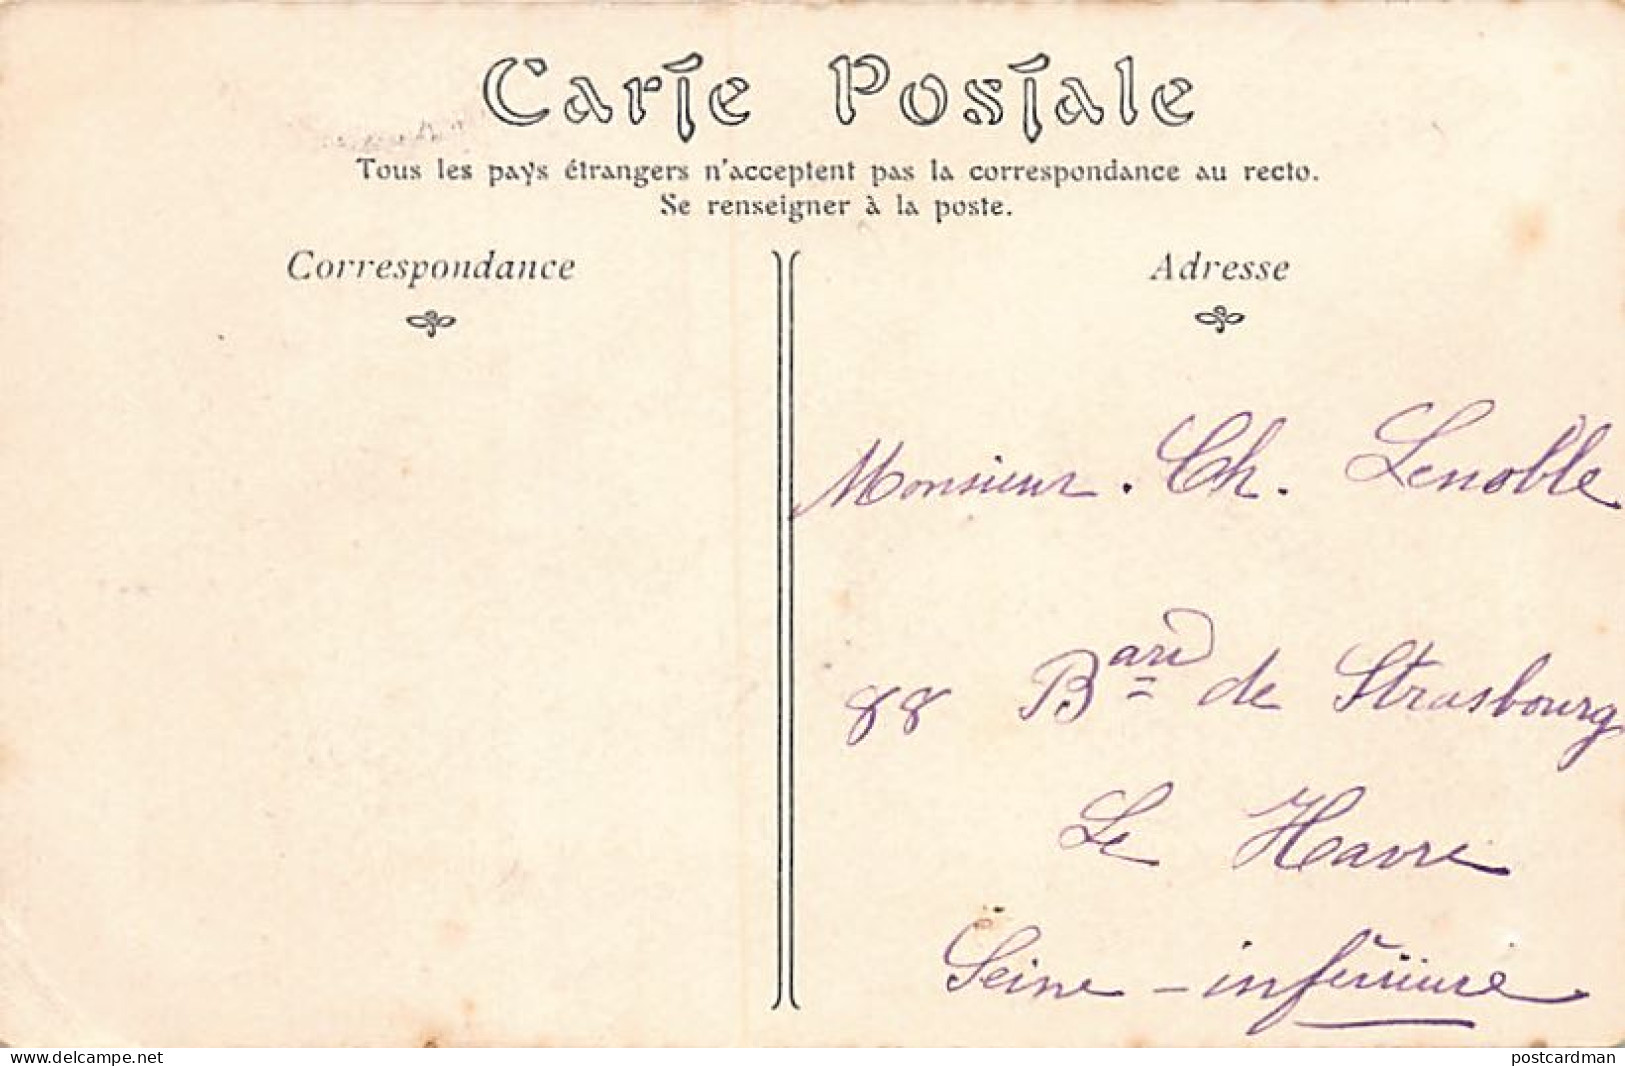 Carte Postale
Tous les pays étrangers n'acceptent pas la correspondance au recto.
Se renseigner à la poste.
Correspondance
Adresse
Monsieur. Ch. Lenoble
88 Bard de Strasbourg
Le Havre
Seine-inférieure
www.delcampe.net
postcardman